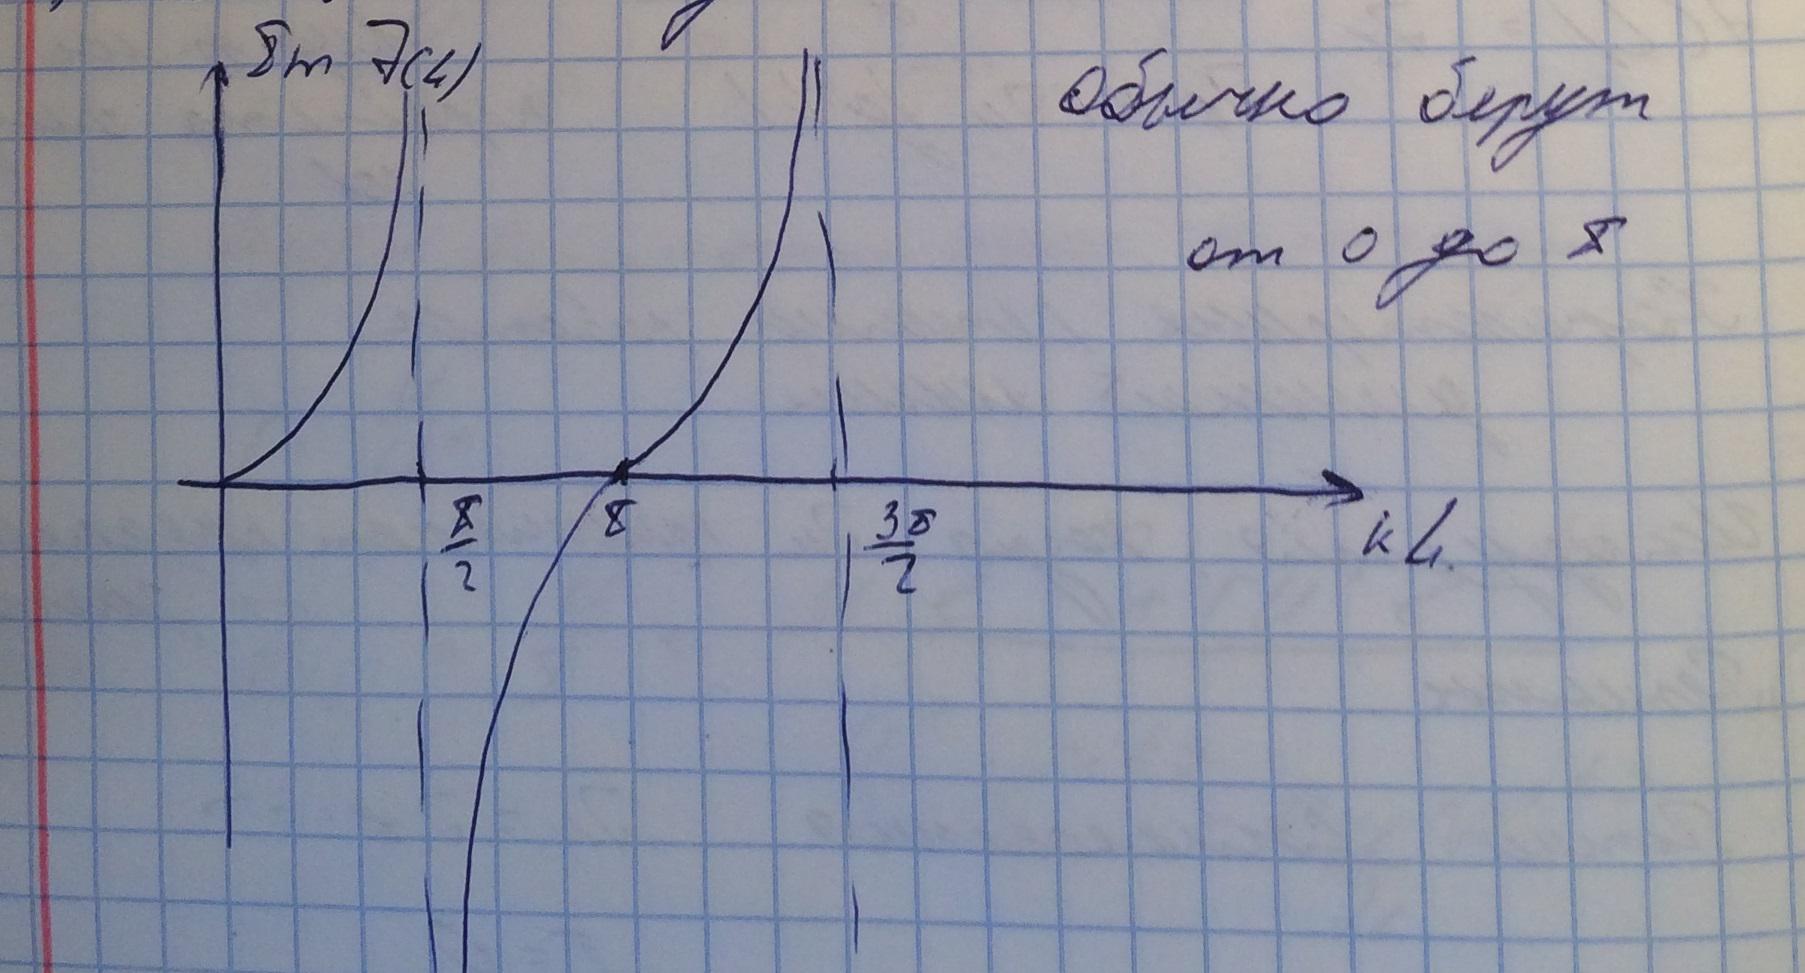 Im Z(L)
Обычно берут
от 0 до π
π/2
π
3π/2
kL